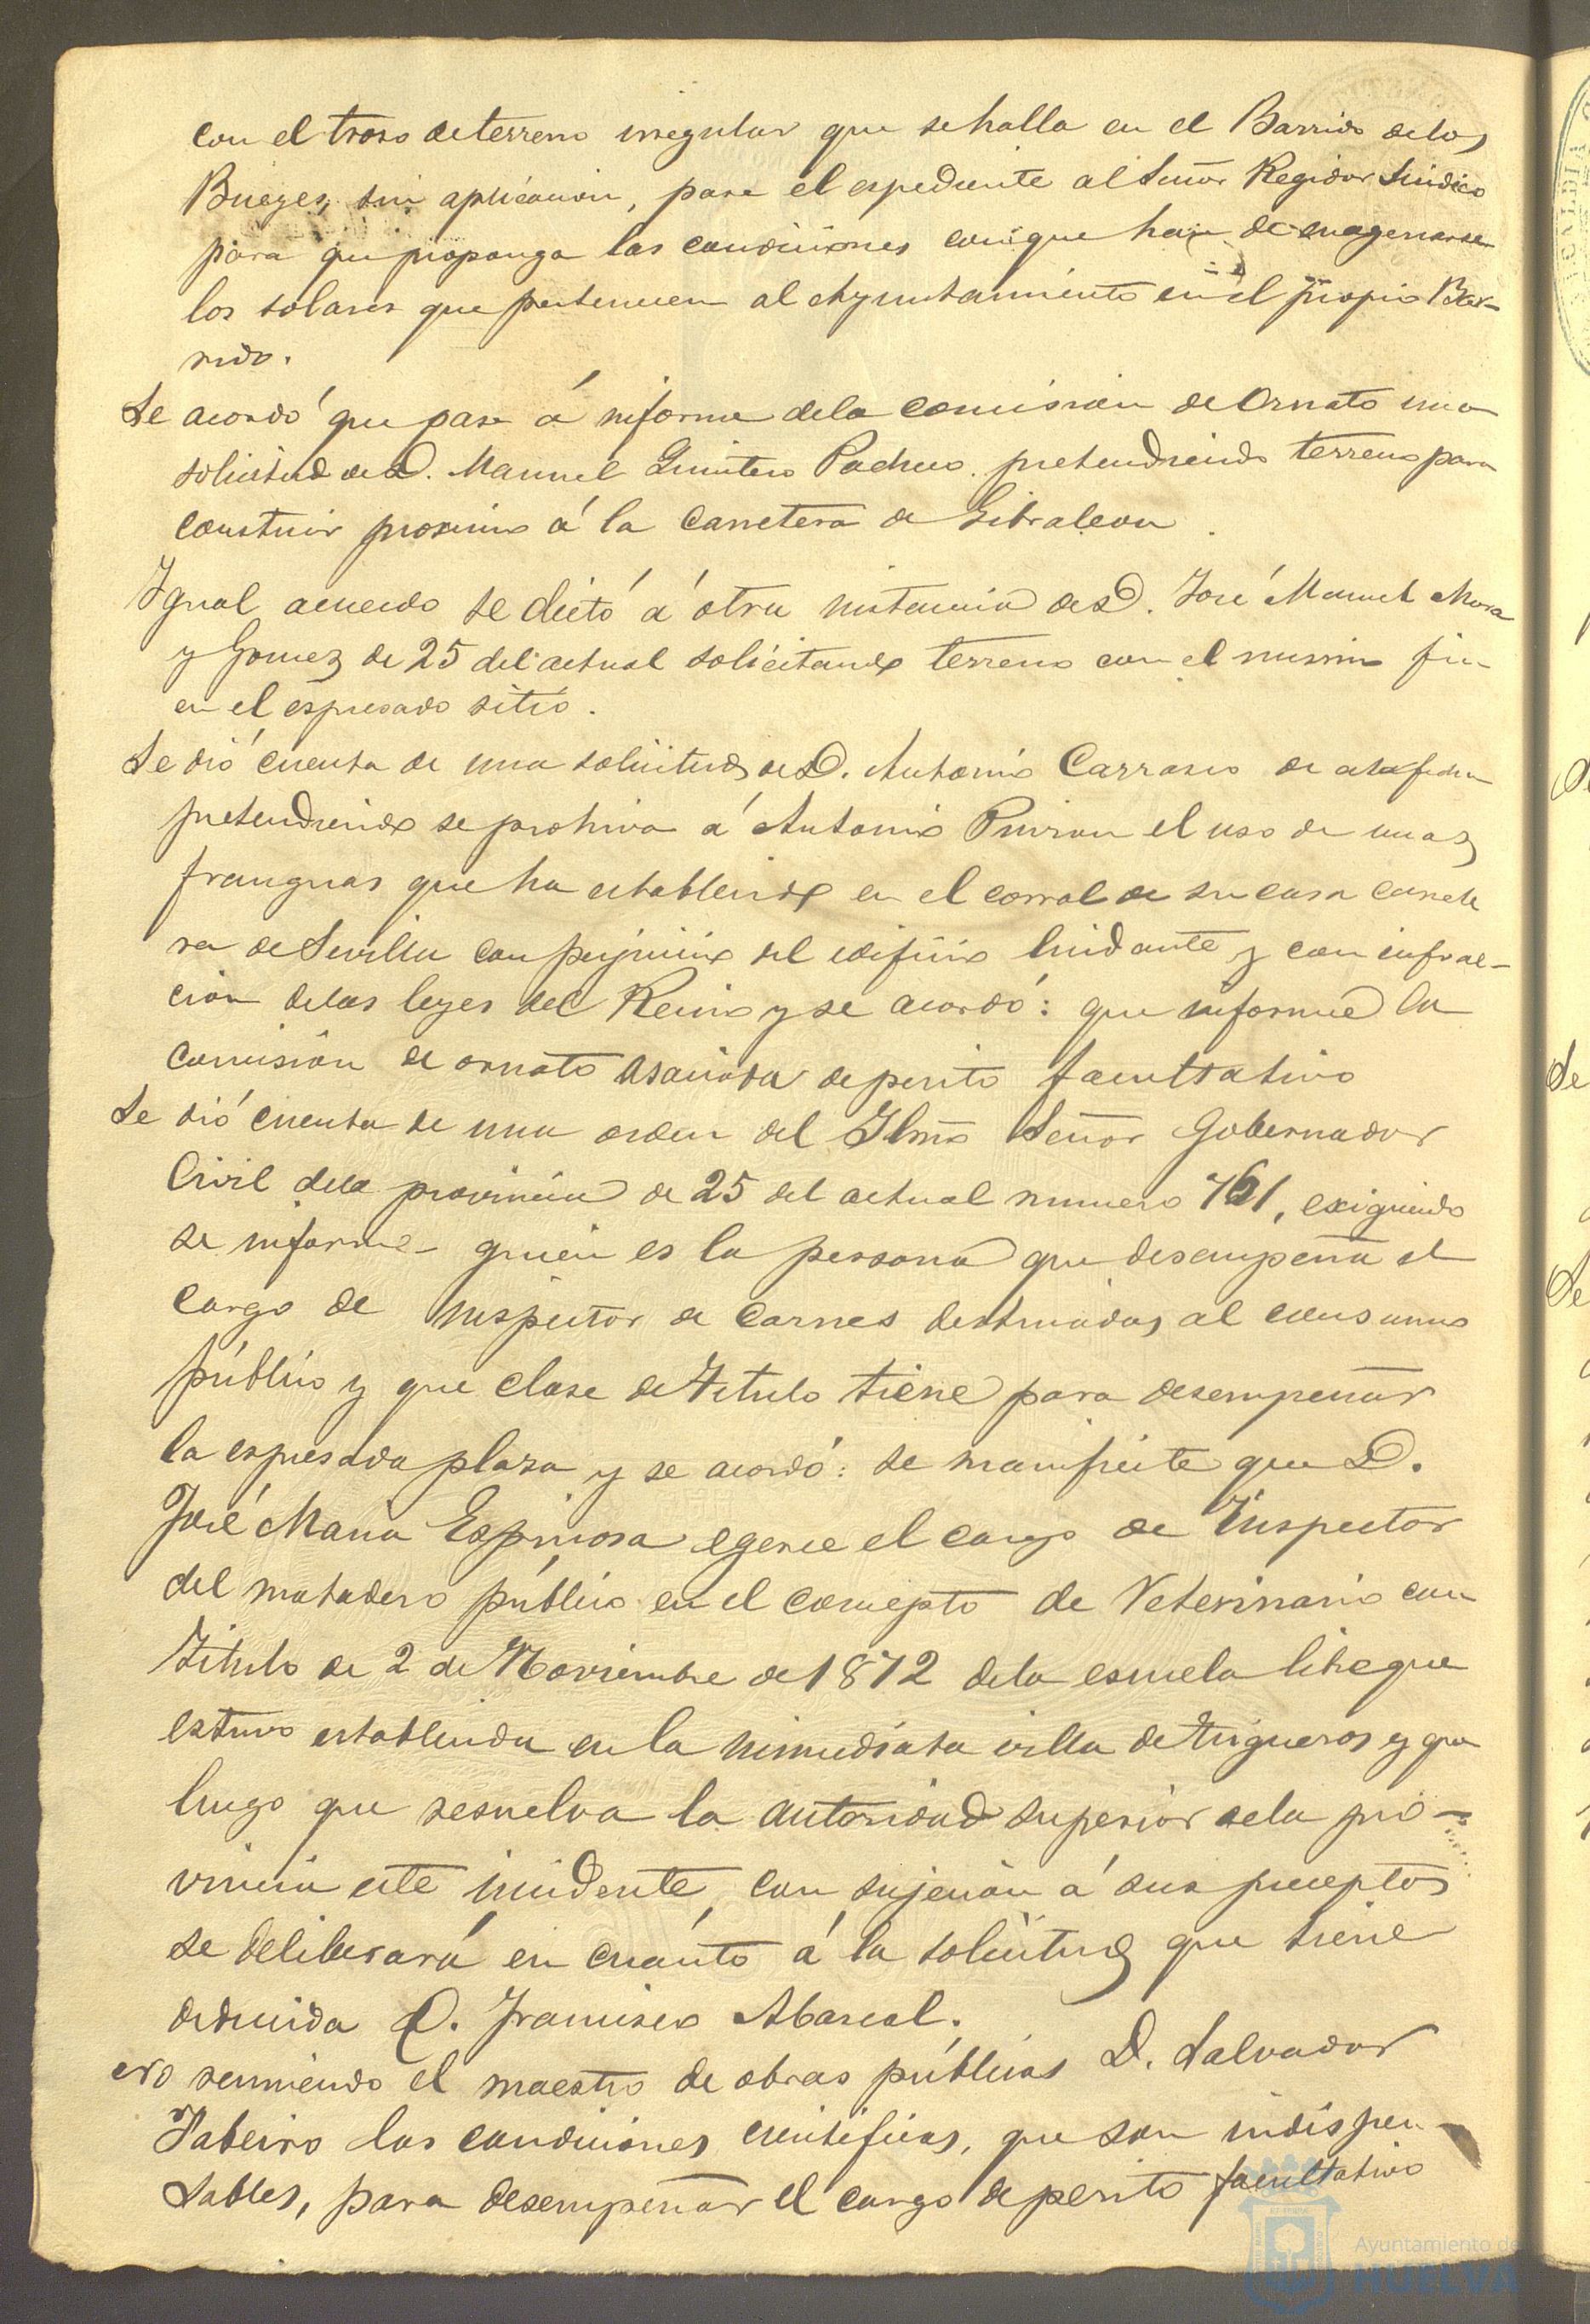 con el troso de terreno irregular que se halla en el Barrido de los
Bueyes, sin aplicacion, pase el espediente al Señor Regidor Sindico
para que proponga las condiciones con que han de enagenarse
los solares que pertenecen al Ayuntamiento en el propio Bar-
rido.
Se acordó que pase á informe de la comision de Ornato una
solicitud de D. Manuel Quintero Pacheco pretendiendo terreno para
construir procsimo á la Carretera de Gibraleon.
Igual acuerdo se dictó á otra instancia de D. José Manuel Mora
y Gomez de 25 del actual solicitando terreno con el mismo fin
en el espresado sitio.
Se dió cuenta de una solicitud de D. Antonio Carrasco de esta fecha
pretendiendo se prohiva á Antonio el uso de unas
franguas que ha establecido en el corral de su casa carrete
ra de Sevilla con perjuicio del edificio lindante y con infrac-
cion de las leyes del Reino y se acordó: que informe la
comision de ornato asociada de perito facultativo
Se dió cuenta de una orden del Ilmo Señor Gobernador
Civil de la provincia de 25 del actual numero 761, exigiendo
se informe quien es la persona que desempeña el
cargo de inspector de carnes destinadas al consumo
público y que clase de Titulo tiene para desempeñar
la espresada plasa y se acordó: se manifieste que D.
José Maria Espinosa egerce el cargo de Inspector
del matadero público en el concepto de Veterinario con
Titulo de 2 de Noviembre de 1872 de la escuela libre que
estuvo establecida en la inmediata villa de Trigueros y que
luego que resuelva la autoridad superior de la pro-
vincia este incidente, con sujecion á sus preceptos
se deliberará en cuánto á la solicitud que tiene
deducida D. Francisco Abascal.
reuniendo el maestro de obras públicas D. Salvador
Tabeiro las condiciones cientificas, que son indispen-
sables, para desempeñar el cargo de perito facultativo
Ayuntamiento de
HUELVA